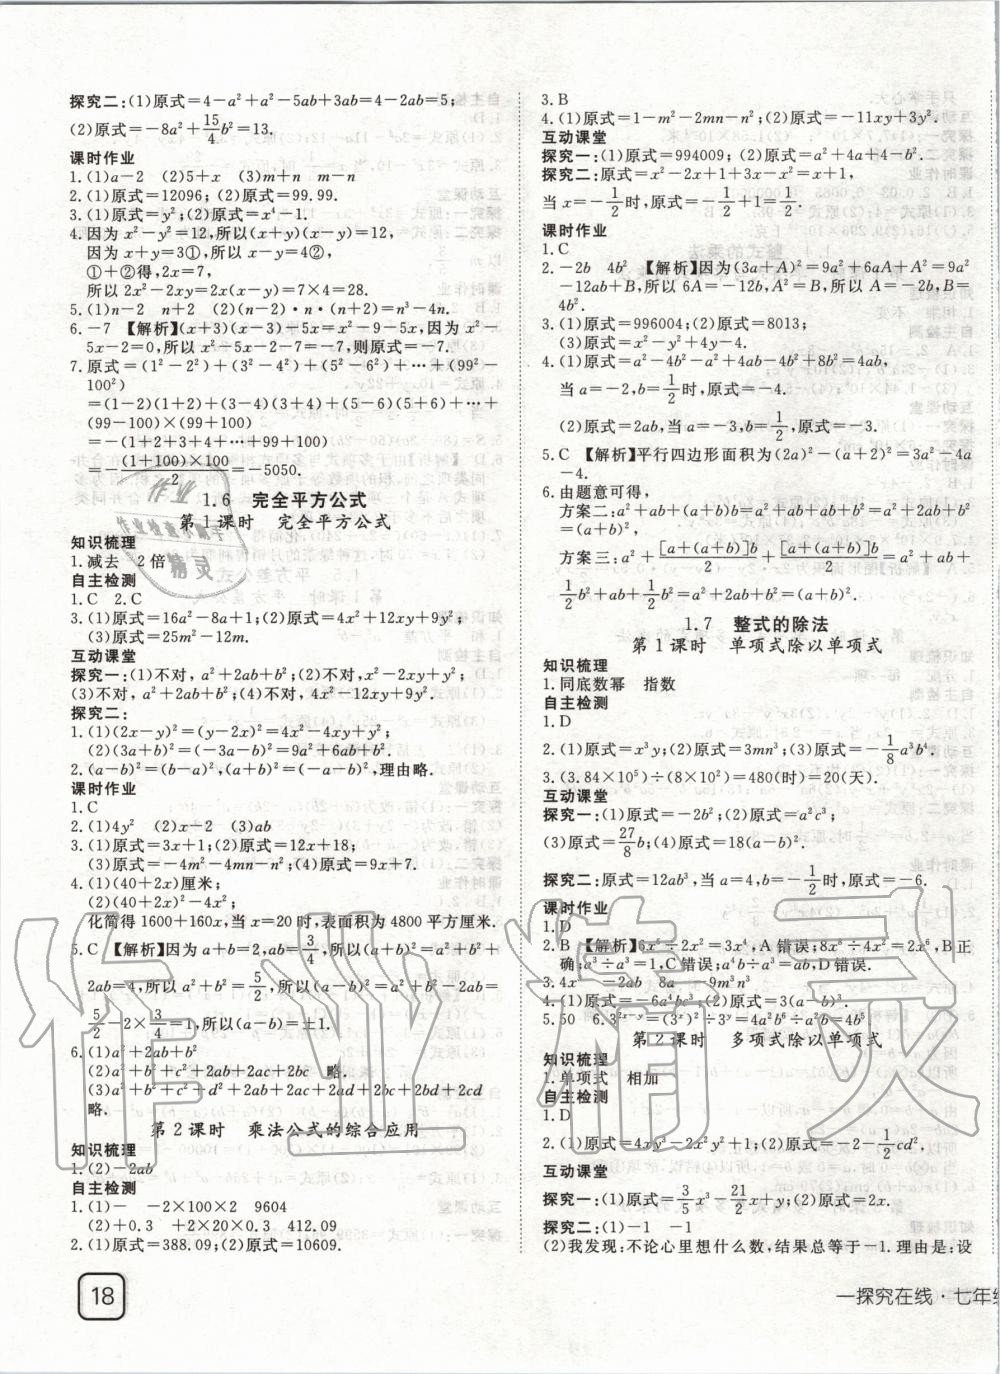 探究二:(1)原式=4-a²+a²-5ab+3ab=4-2ab=5;
(2)原式=-8a²+15/4b²=13.
课时作业
1.(1)a-2 (2)5+x (3)m+n m-n
2.(1)原式=12096;(2)原式=99.99.
3.(1)原式=y²;(2)原式=x⁴-1.
4.因为x²-y²=12,所以(x+y)(x-y)=12,
因为x+y=3①,所以x-y=4②,
①+②得,2x=7,
所以2x²-2xy=2x(x-y)=7×4=28.
5.(1)n-2 n+2 (2)(n-2)·n·(n+2)=n³-4n.
6.-7 【解析】(x+3)(x-3)-5x=x²-9-5x,因为x²-
5x-2=0,所以x²-5x-2-7=-7,则原式=-7.
7.原式=(1²-2²)+(3²-4²)+(5²-6²)+…+(99²-
100²)
=(1-2)(1+2)+(3-4)(3+4)+(5-6)(5+6)+…+
(99-100)×(99+100)
=-(1+2+3+4+…+99+100)
=-(1+100)×100/2=-5050.
1.6 完全平方公式
第1课时 完全平方公式
知识梳理
1.减去 2倍
自主检测
1.C 2.C
3.(1)原式=16a²-8a+1;(2)原式=4x²+12xy+9y²;
(3)原式=25m²-12m.
互动课堂
探究一:(1)不对,a²+2ab+b²;(2)不对,x²-2xy+y²;
(3)不对,a²+2ab+b²;(4)不对,4x²-12xy+9y².
探究二:
1.(1)(2x-y)²=(y-2x)²=4x²-4xy+y²;
(2)(3a+b)²=(-3a-b)²=9a²+6ab+b².
2.(a-b)²=(b-a)²,(a+b)²=(-a-b)²,理由略.
课时作业
1.C
2.(1)4y² (2)x-2 (3)ab
3.(1)原式=3x+1;(2)原式=12x+18;
(3)原式=-4m²-4mn-n²;(4)原式=9x+7.
4.(1)(40+2x)厘米;
(2)(40+2x)²-4x²;
化简得1600+160x,当x=20时,表面积为4800平方厘米.
5.C 【解析】因为a+b=2,ab=3/4,所以(a+b)²=a²+b²+
2ab=4,所以a²+b²=5/2,所以(a-b)²=a²+b²-2ab=
5/2-2×3/4=1,所以(a-b)=±1.
6.(1)a²+2ab+b²
(2)a²+b²+c²+2ab+2ac+2bc 略.
(3)a²+b²+c²+d²+2ab+2ac+2ad+2bc+2bd+2cd
略.
第2课时 乘法公式的综合应用
知识梳理
1.(2)-2ab
自主检测
1.(1)- -2×100×2 9604
(2)+0.3 +2×20×0.3 412.09
2.(1)原式=388.09;(2)原式=10609.
18
3.B
4.(1)原式=1-m²-2mn-n²;(2)原式=-11xy+3y².
互动课堂
探究一:(1)原式=994009;(2)原式=a²+4a+4-b².
探究二:原式=x²-2x+1+3x-x²=x+1,
当x=-1/2时,原式=-1/2+1=1/2.
课时作业
1.C
2.-2b 4b² 【解析】因为(3a+A)²=9a²+6aA+A²=9a²
-12ab+B,所以6A=-12b,A²=B,所以A=-2b,B=
4b².
3.(1)原式=996004;(2)原式=8013;
(3)原式=x²-y²+4y-4.
4.(1)原式=a²-4b²-a²+4ab-4b²+8b²=4ab,
当a=-2,b=1/2时,原式=-4.
(2)原式=2ab,当a=-3,b=1/2,原式=-3.
5.C 【解析】平行四边形面积为(2a)²-(a+2)²=3a²-4a
-4.
6.由题意可得,
方案二:a²+ab+(a+b)b=a²+ab+ab+b²=a²+2ab+b²
=(a+b)²,
方案三:a²+[a+(a+b)]b/2+[a+(a+b)]b/2=a²+ab+
1/2b²+ab+1/2b²=a²+2ab+b²=(a+b)².
1.7 整式的除法
第1课时 单项式除以单项式
知识梳理
1.同底数幂 指数
自主检测
1.D
2.(1)原式=x³y;(2)原式=3mn³;(3)原式=-1/8a³b⁴.
3.(3.84×10⁵)÷(8×10²)=480(时)=20(天).
互动课堂
探究一:(1)原式=-2b²;(2)原式=a²c³;
(3)原式=27/8b;(4)原式=18(a-b)².
探究二:原式=12ab³,当a=4,b=-1/2时,原式=-6.
课时作业
1.D
2.B 【解析】6x⁶÷2x²=3x⁴,A错误;8x⁸÷4x²=2x⁶,B正
确;a³÷a³=1,C错误;a⁴b÷a³=ab,D错误.
3.4x⁴ -2ab 8a -9m³n³
4.(1)原式=-6a⁴bc³,(2)原式=3(a-b)³.
5.50 6.3²ˣ⁻ʸ=(3ˣ)²÷3ʸ=4a²b⁶÷ab=4b⁵
第2课时 多项式除以单项式
知识梳理
1.单项式 相加
自主检测
1.D
2.(1)原式=4xy³-2x²y²+1;(2)原式=2-1/2cd²,
互动课堂
探究一:(1)原式=3/5x³-21/2x+y;(2)原式=2x.
探究二:(1)-1 -1
(2)我发现:不论心里想什么数,结果总等于-1.理由是:设
一探究在线·七年